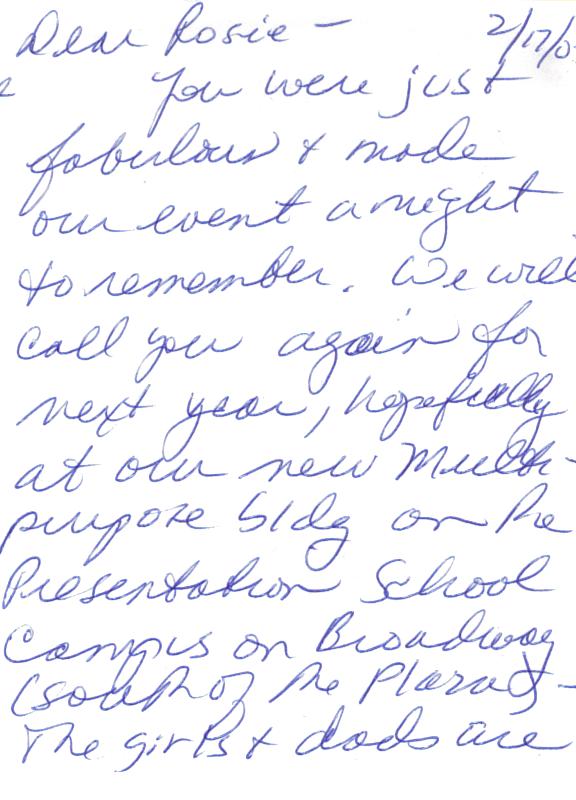 Dear Rosie — 2/17/0
You were just
fabulous & made
our event a night
to remember. We will
call you again for
next year, hopefully
at our new Multi-
purpose bldg on the
Presentation School
Campus on Broadway
(south of the Plaza) —
The girls & dads are